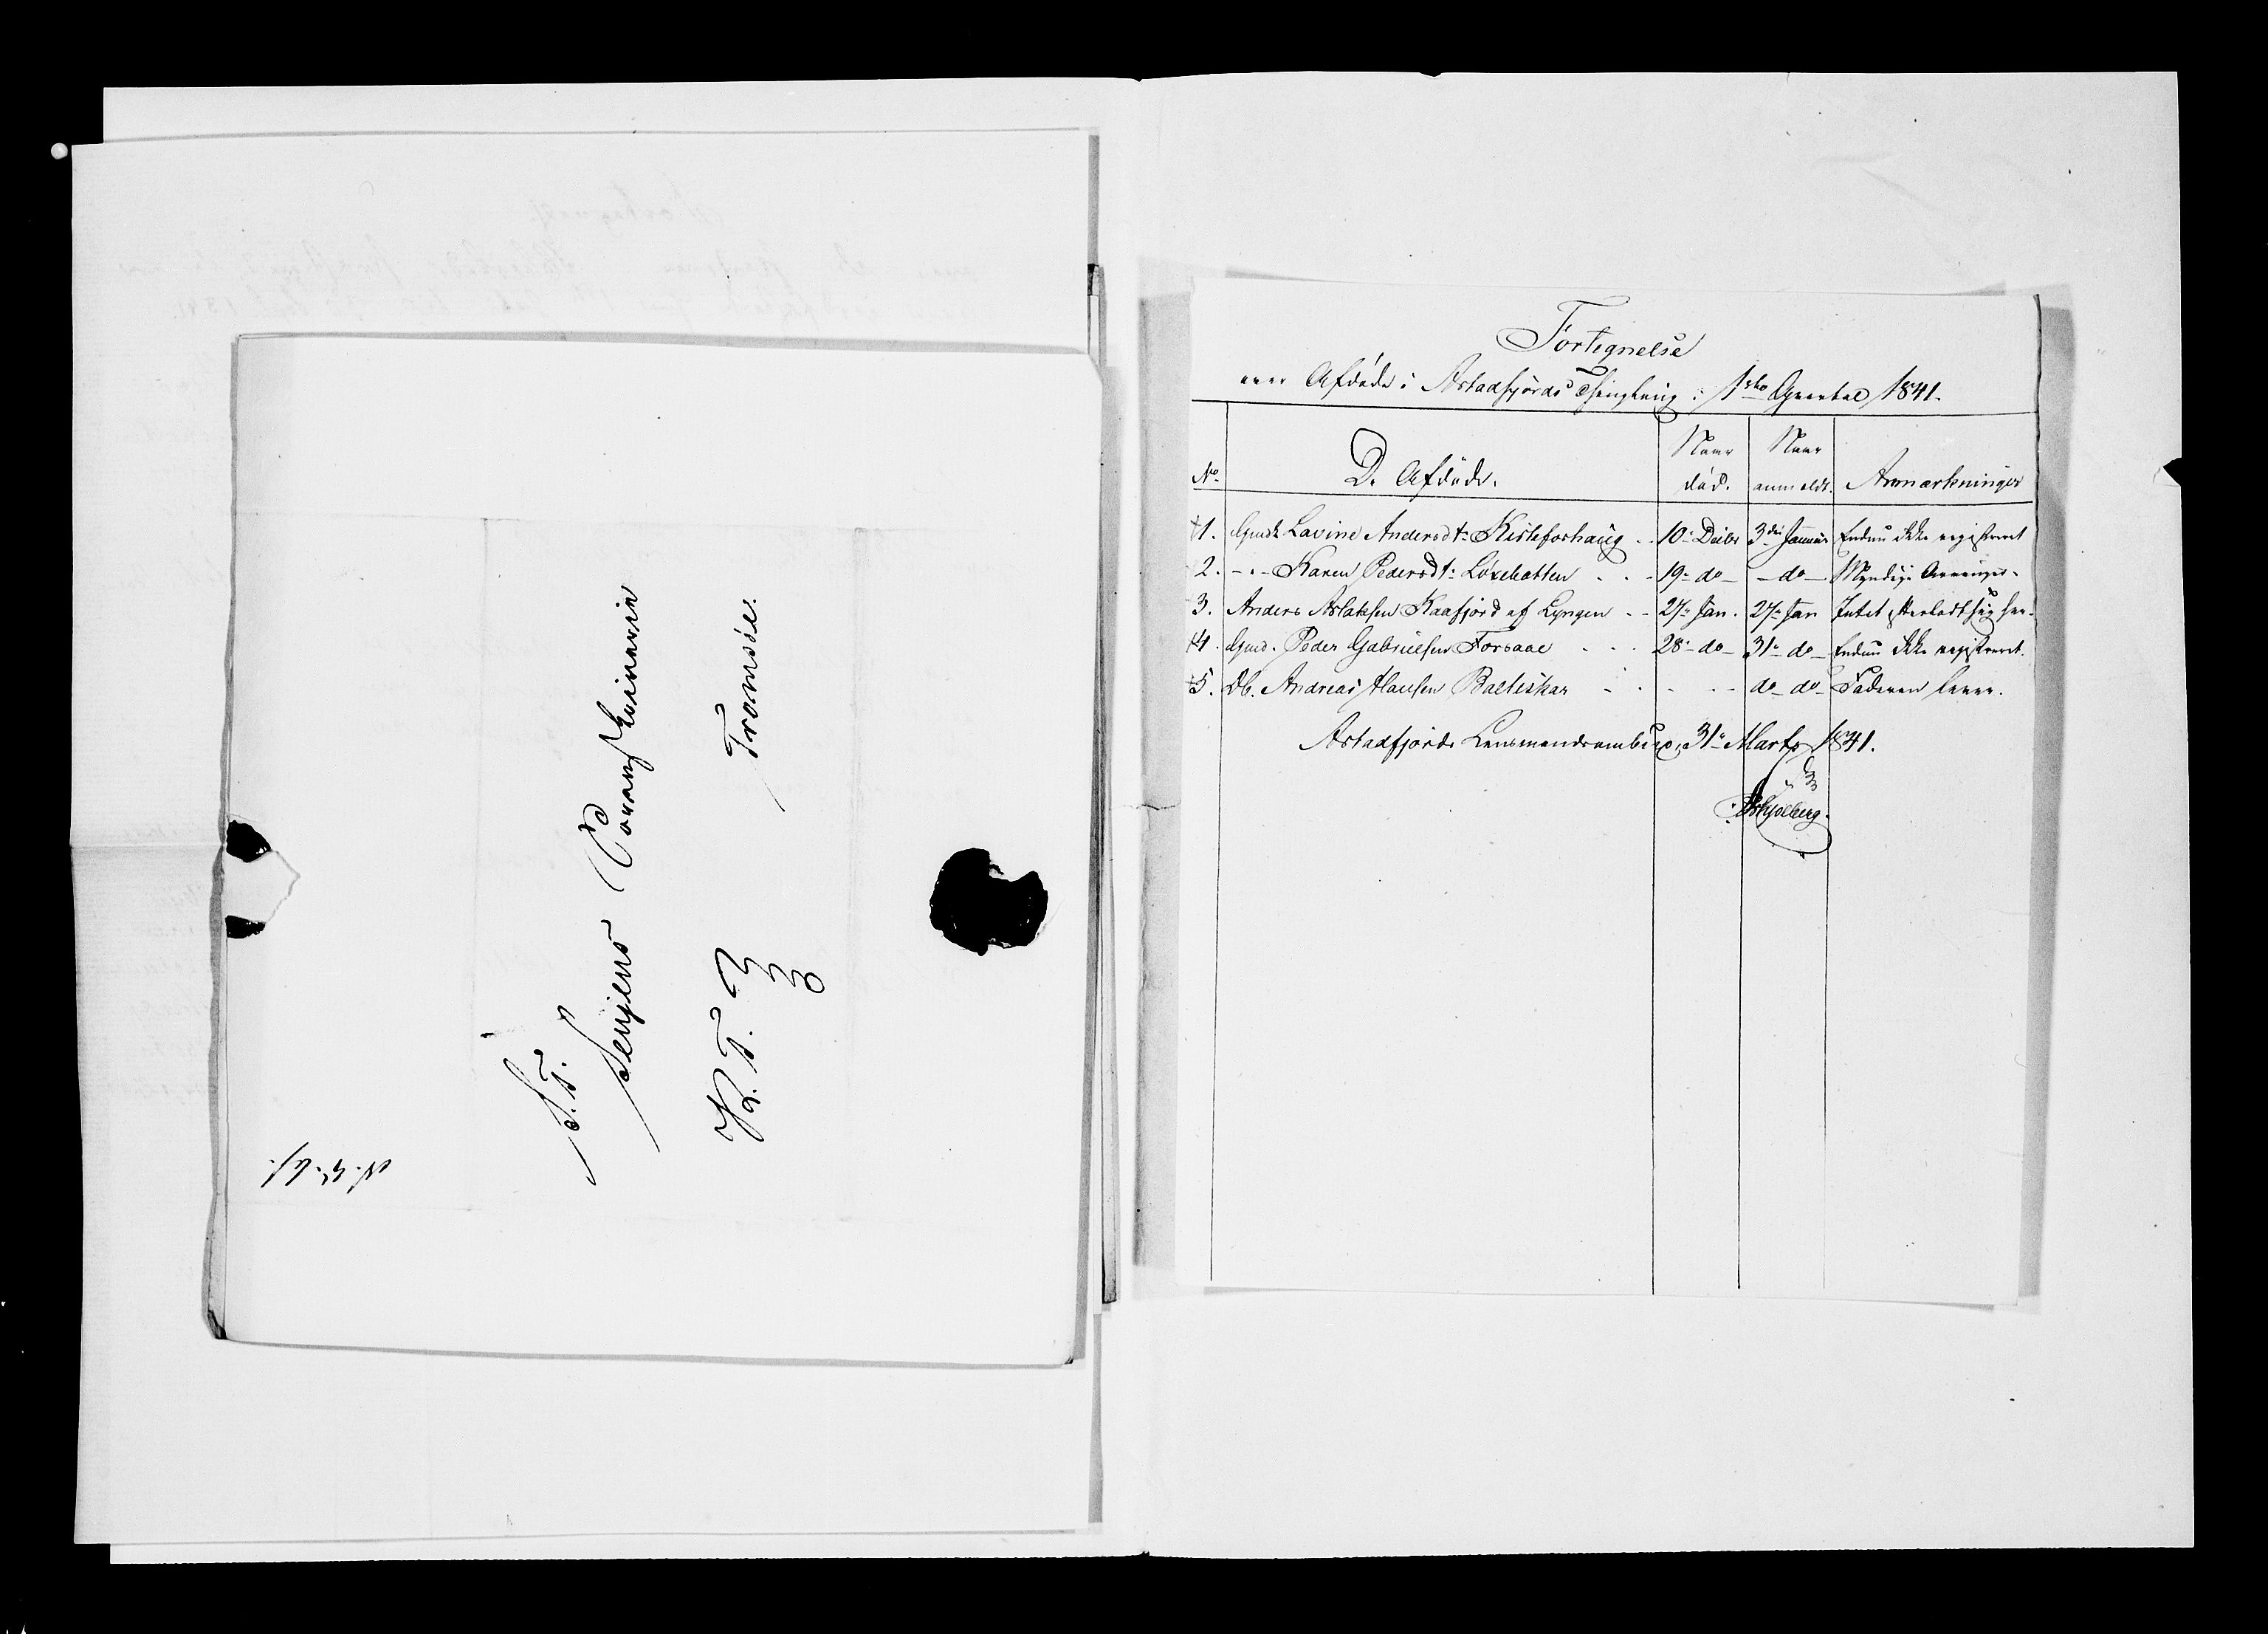 S. T.
Senjens Sorenskriverie
K. T. T.
Tromsöe.
Fortegnelse
over Afdøde i Astadfjords Thinglaug i 1ste Qvartal 1841.
No.
De Afdøde.
Naar død.
Naar anmeldt.
Anmærkninger
1. Gmdk Lavine Andersdt. Kisteforhaug 10. Decbr 3die Januar Endnu ikke registreret
2. - " - Karen Pedersdt. Löxebotten 19. do - do - Myndige Arvinger.
3. Anders Aslaksen Kaafjord af Lyngen 27. Jan. 27. Jan Intet efterladt sig her.
4. Gmd. Peder Gabrielsen Forsaae 28. do 31. do Endnu ikke registreret.
5. Db. Andreas Hansen Balteskar do do Faderen lever.
Astadfjords Lensmandsembede, 31. Marts 1841.